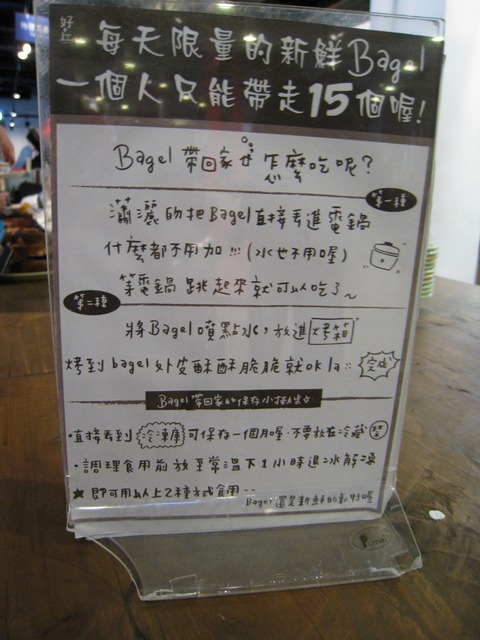 好丘
每天限量的新鮮Bagel
一個人只能帶走15個喔!
Bagel 帶回家要怎麼吃呢?
第一種
瀟灑的把Bagel直接丟進電鍋
什麼都不用加!!! (水也不用喔)
等電鍋 跳起來就可以吃了~
第二種
將Bagel噴點水,放進烤箱
烤到bagel外皮酥酥脆脆就ok la:: 完成
Bagel帶回家的保存小撇步
·直接丟到冷凍庫可保存一個月喔·不要放在冷藏
·調理食用前放至常溫下1小時退冰解凍
★即可用以上2種方式食用--
Bagel還是新鮮的最好喔